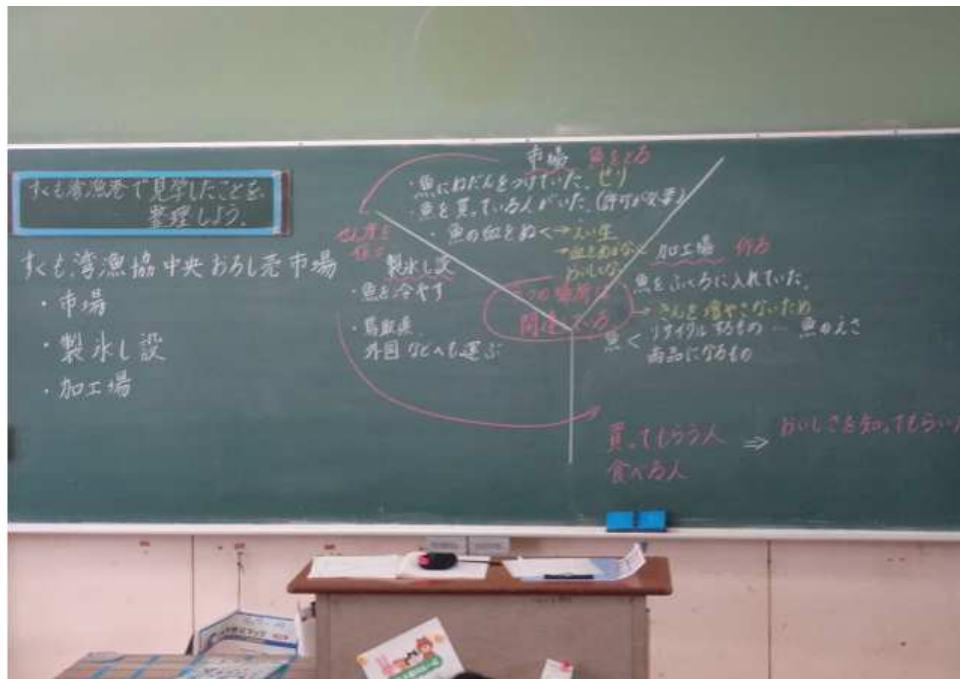 すくも湾漁港で見学したことを、
整理しよう。
すくも湾漁協中央おろし売市場
・市場
・製氷し設
・加工場
市場 魚をとる
・魚にねだんをつけていた。
・魚を買っている人がいた。(許可が必要)
・魚の血をぬく→
せん度を
保つ
製氷し設
・魚を冷やす
・鳥取県、
外国などへも運ぶ
場所は
関連している
加工場 作る
・魚をふくろに入れていた。
→きんを増やさないため
魚<リサイクルするもの…魚のえさ
商品になるもの
買ってもらう人
食べる人
⇒おいしさを知ってもらいた